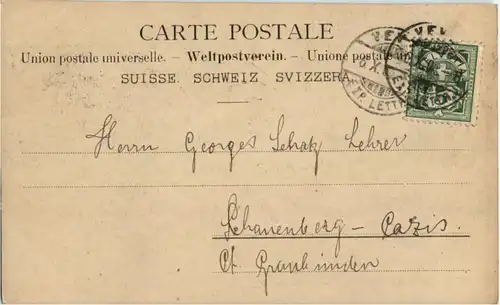 CARTE POSTALE
Union postale universelle. – Weltpostverein. – Unione postale
SUISSE. SCHWEIZ. SVIZZERA.
VEVEY
EXP. LETTR.
Herrn Georges Schatz Lehrer
Schauenberg – Cazis.
Ct. Graubünden